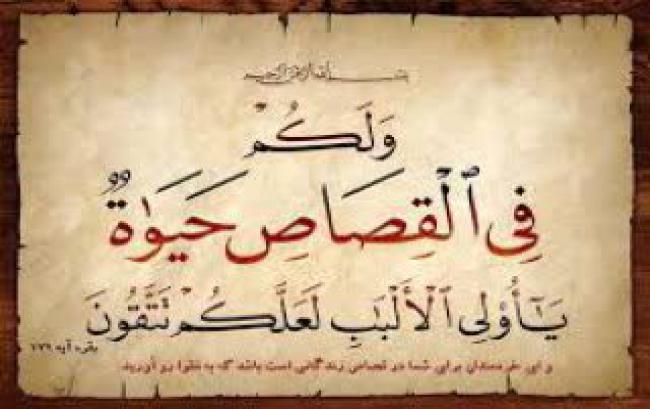 بسم الله الرحمن الرحیم
وَلَكُمْ
فِی ٱلْقِصَاصِ حَیَوٰةٌ
یَـٰٓأُو۟لِی ٱلْأَلْبَـٰبِ لَعَلَّكُمْ تَتَّقُونَ
بقره آیه ۱۷۹
و ای خردمندان برای شما در قصاص زندگانی است باشد که به تقوا رو آورید.